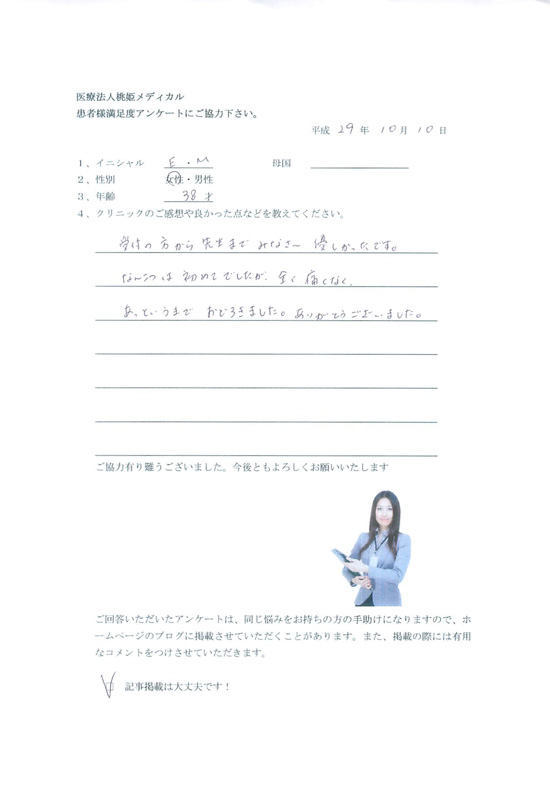 医療法人桃姫メディカル
患者様満足度アンケートにご協力下さい。
平成 29 年 10 月 10 日
1、イニシャル E・M 母国
2、性別 女性・男性
3、年齢 38 才
4、クリニックのご感想や良かった点などを教えてください。
受付の方から 先生まで みなさん 優しかったです。
は 初めてでしたが、全く痛くなく、
あっというまで おどろきました。ありがとうございました。
ご協力有り難うございました。今後ともよろしくお願いいたします
ご回答いただいたアンケートは、同じ悩みをお持ちの方の手助けになりますので、ホ
ームページのブログに掲載させていただくことがあります。また、掲載の際には有用
なコメントをつけさせていただきます。
記事掲載は大丈夫です！